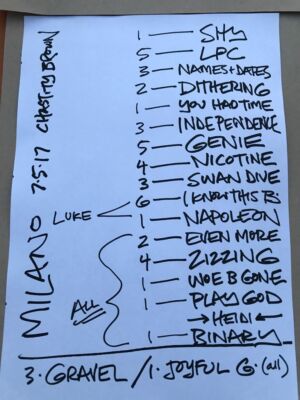 MILANO 7-5-17 CHASTITY BROWN
1 — SHY
5 — LPC
3 — NAMES + DATES
2 — DITHERING
1 — YOU HAD TIME
3 — INDEPENDENCE
5 — GENIE
4 — NICOTINE
3 — SWAN DIVE
6 — I KNOW THIS B:
LUKE < 1 — NAPOLEON
ALL { 2 — EVEN MORE
4 — ZIZZING
1 — WOE B GONE
1 — PLAY GOD
→ HEIDI ←
1 — BINARY
3. GRAVEL / 1. JOYFUL G. (all)